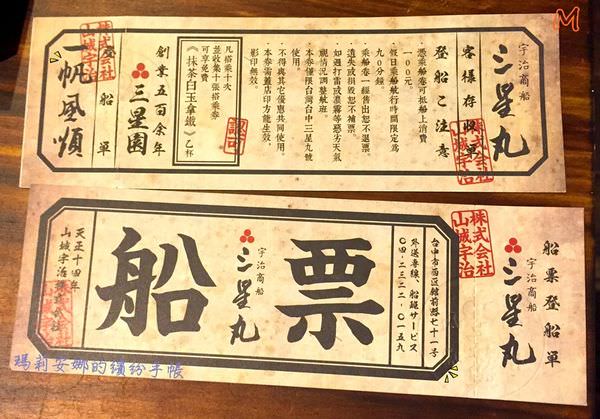 M
宇治商船
三星丸
客樣存收單
登船ご注意
憑乘船卷可抵船上消費
一00元。
假日乘船航行時間限定為
九0分鐘。
乘船卷一經售出恕不退票。
遺失或損毀恕不補票。
如遇打雷或濃霧等惡劣天氣
視情況調整航班。
本券僅限台灣台中三星九號
使用。
不得與其它優惠共同使用。
本券需蓋店印方能生效，
影印無效。
認可
凡搭乘十次
並收集十張搭乘券
可享免費
《抹茶白玉拿鐵》乙杯
三星園
創業五百余年
登船單
一帆風順
株式会社
山城宇治
株式会社
山城宇治
船票登船單
宇治商船
三星丸
株式会社
山城宇治
台中市西區館前路七十一號
外送專線、船艇サービス
〇四-二三二二-〇一五九
船票
宇治商船
三星丸
天正十四年
山城宇治株式会社
瑪莉安娜的繽紛手帳